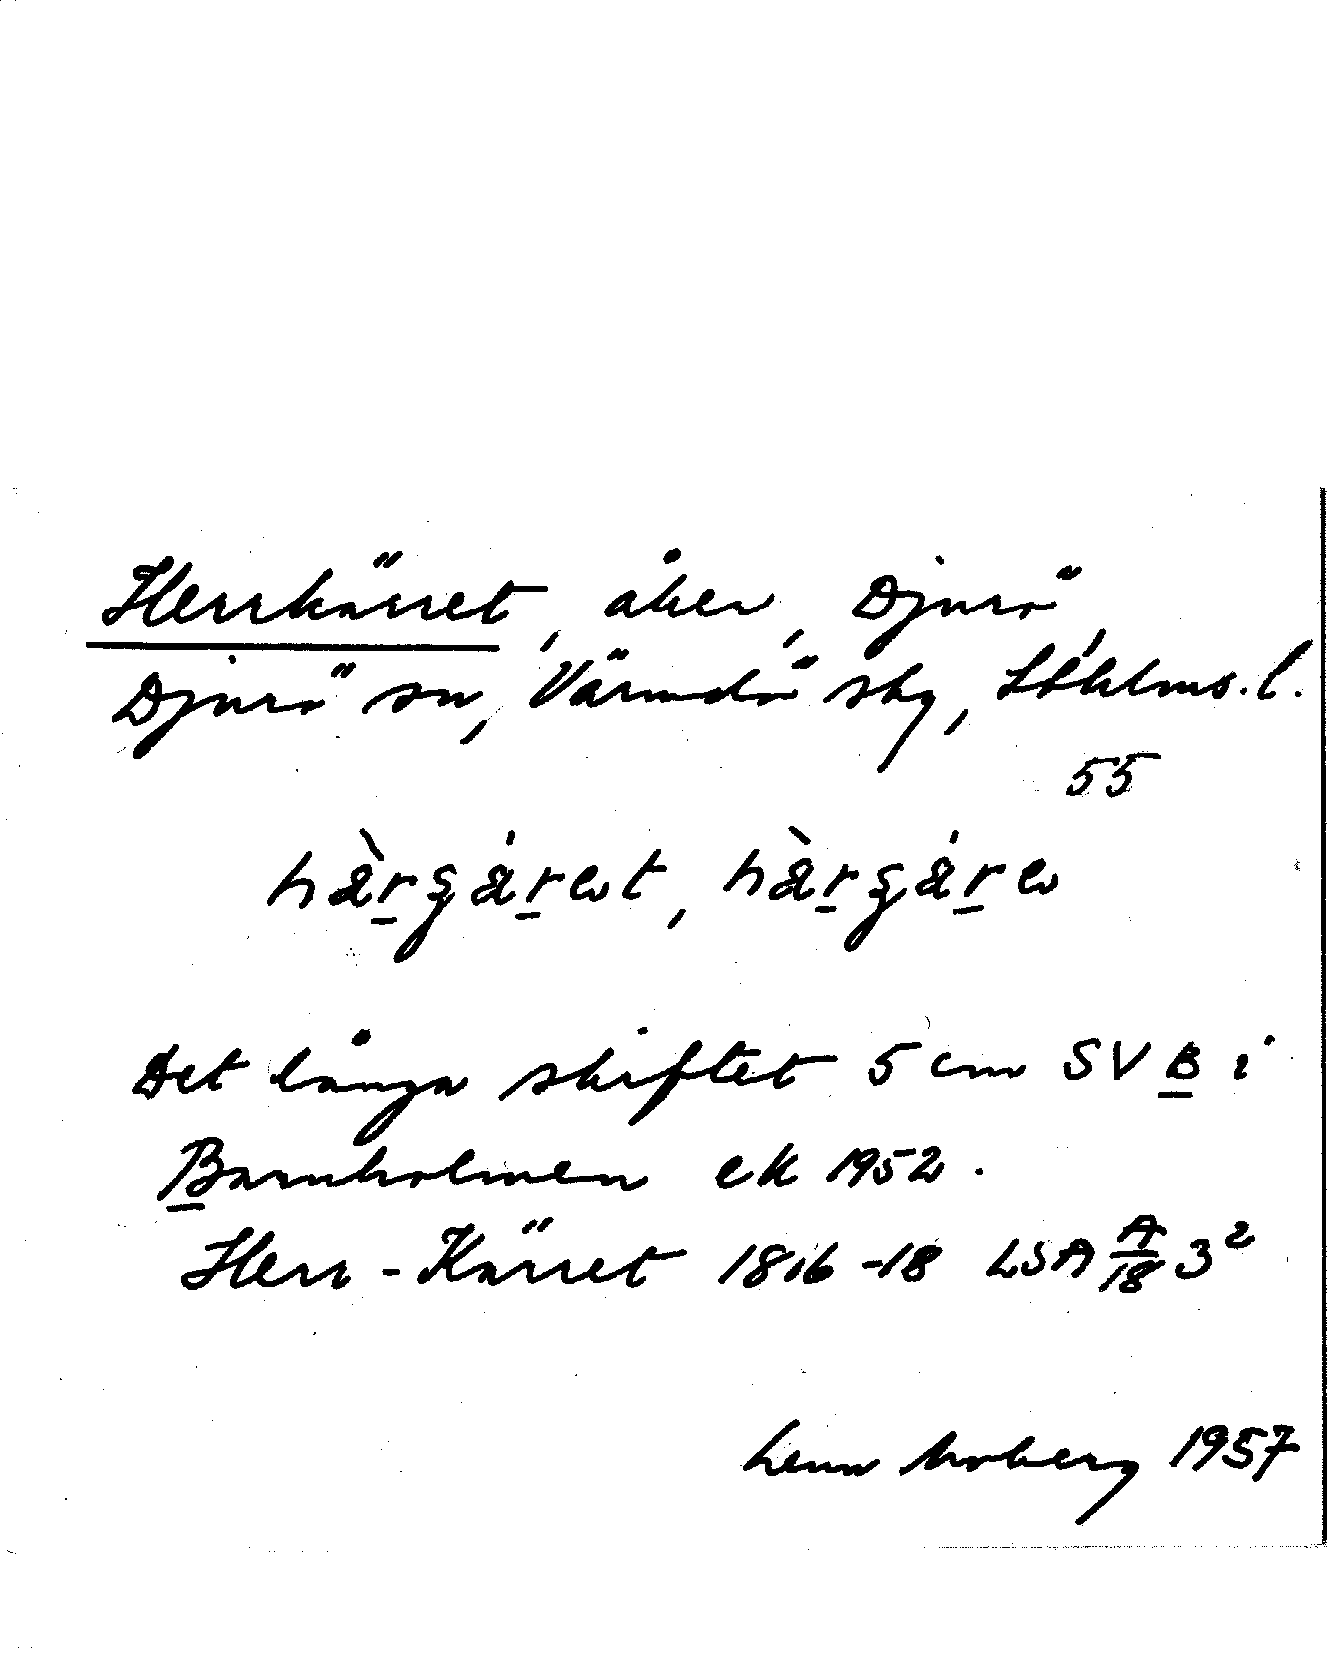 Herrkärret, åker, Djurö,
Djurö sn, Värmdö skg, Sthlms. l.
55
Det långa skiftet 5 cm SV B i
Barnholmen ek 1952.
Herr-Kärret 1816-18 LSA A/18 3²
Lenn Moberg 1957